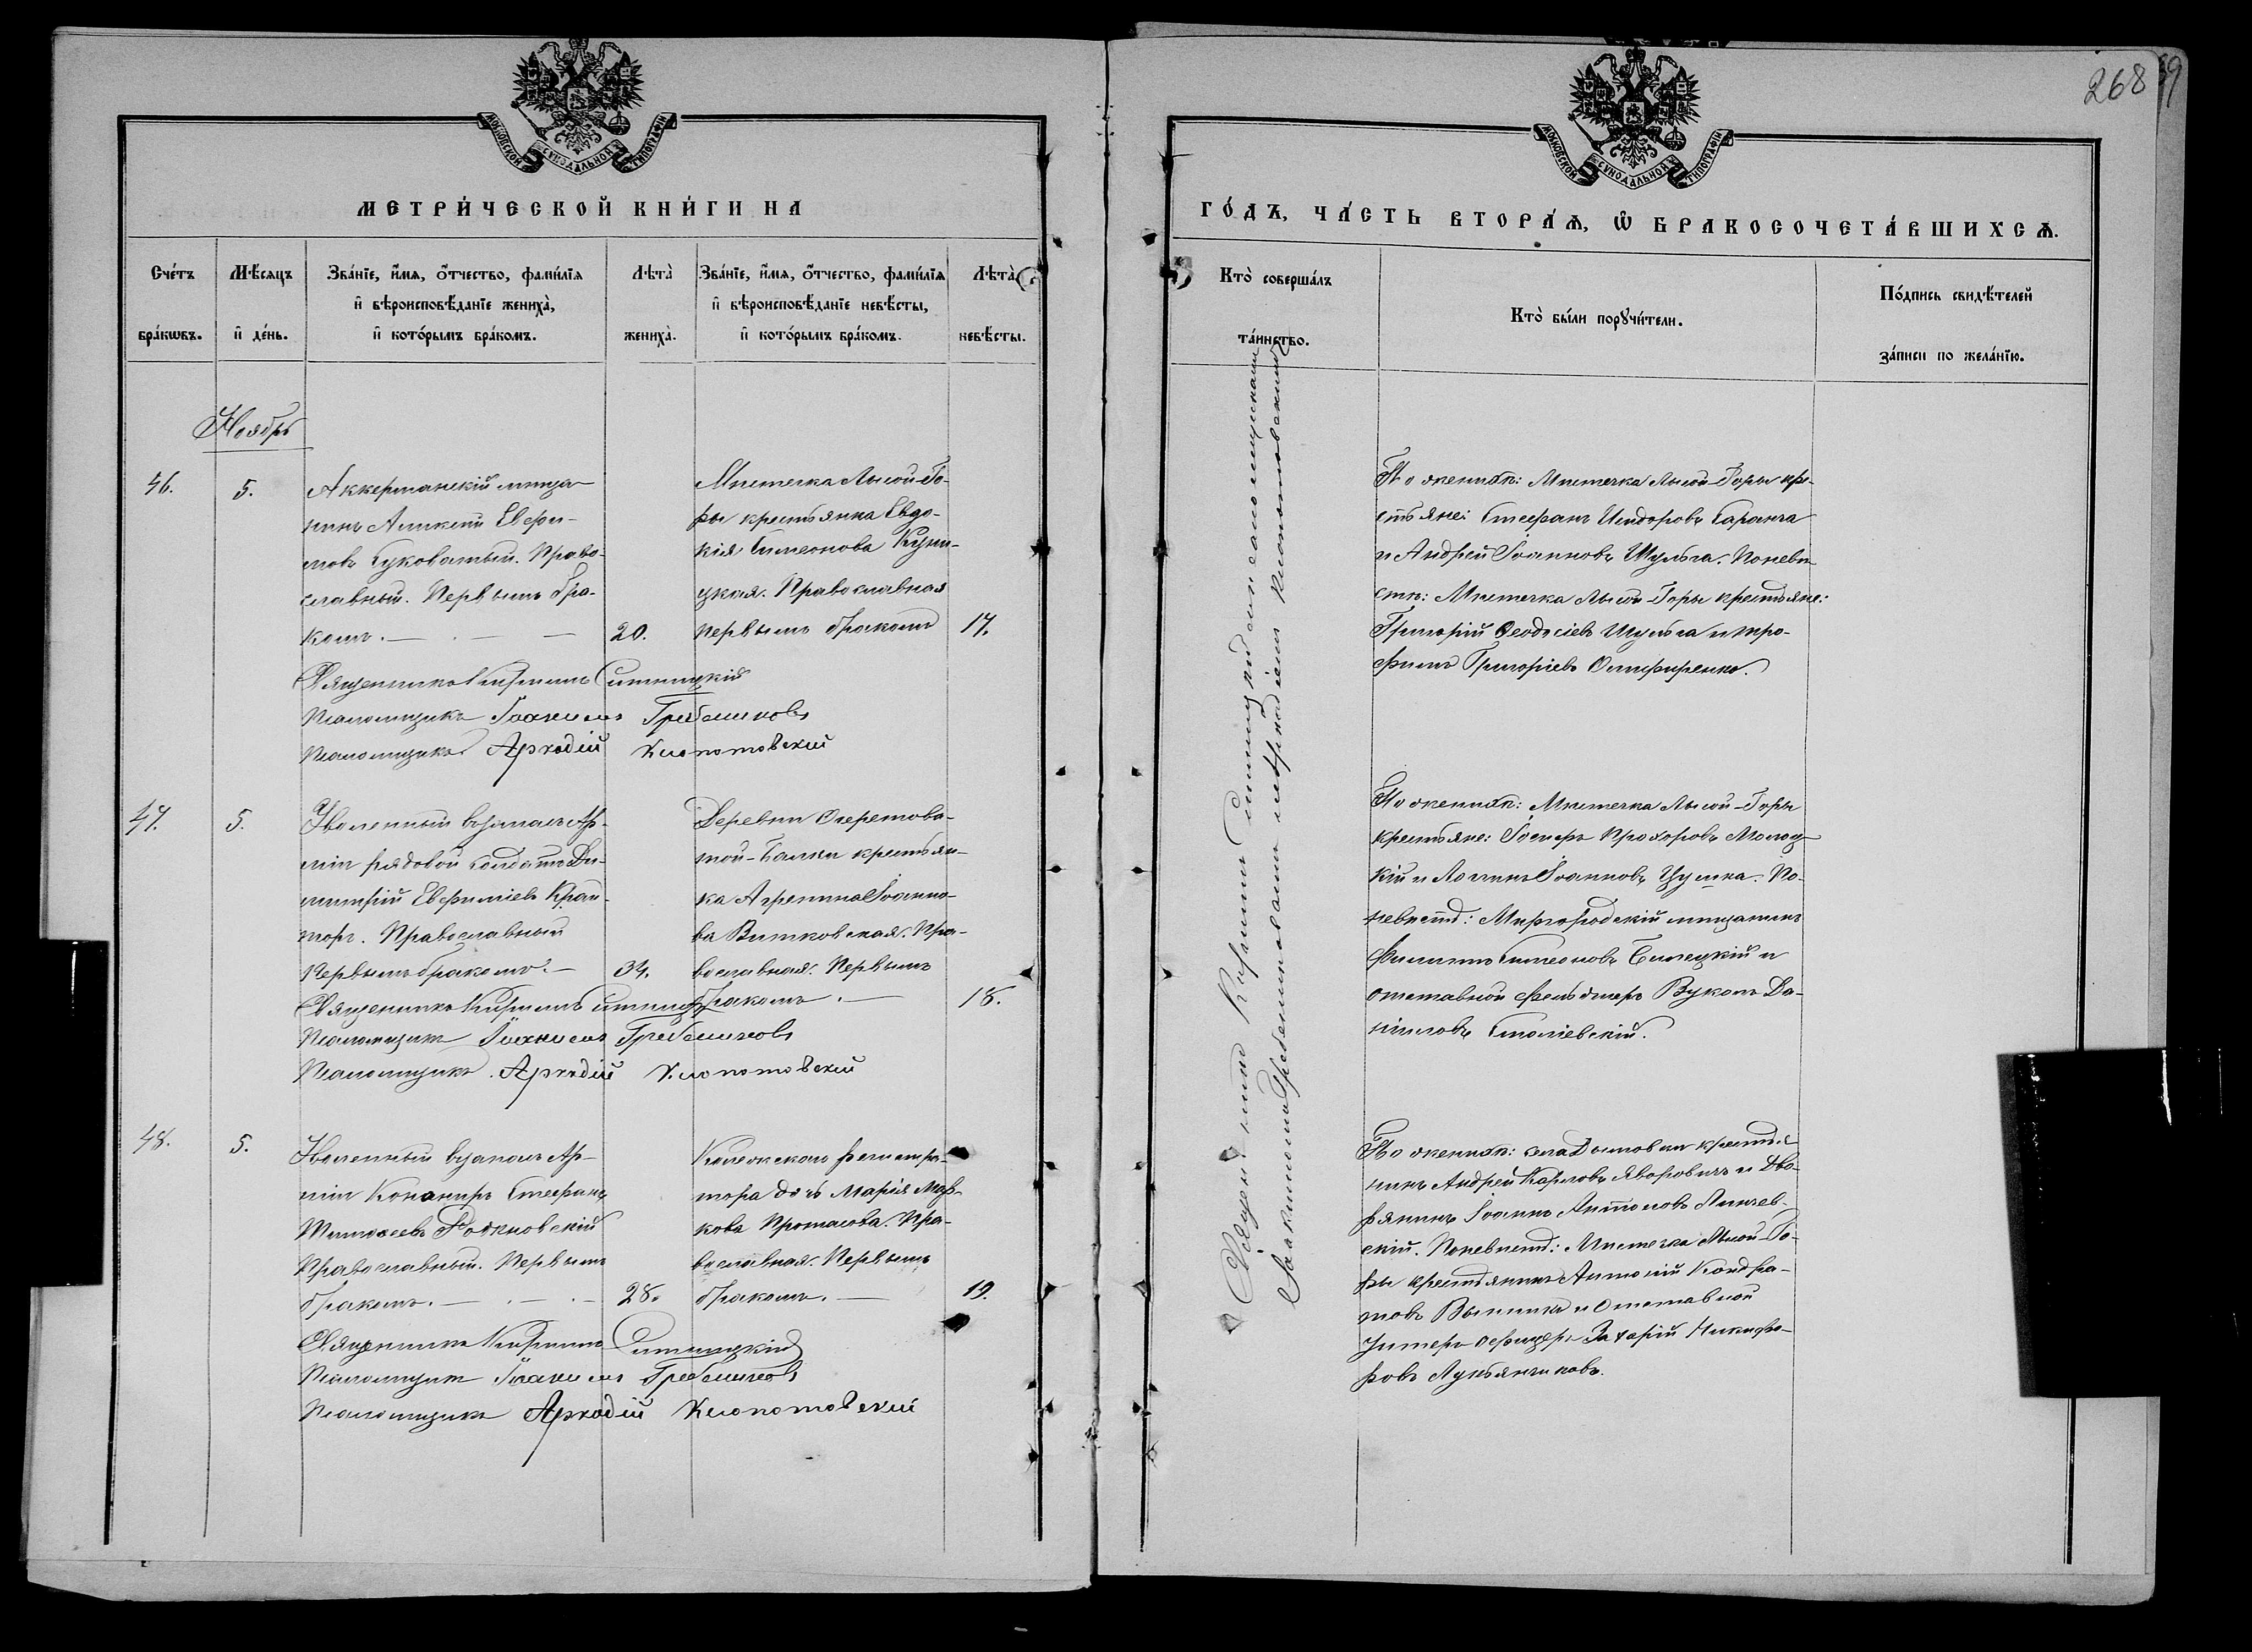 МОСКОВСКОЙ СУНОДАЛЬНОЙ ТИПОГРАФІИ
МЕТРИ́ЧЕСКОЙ КНИ́ГИ НА
Сче́тъ бра́кѡвъ.
Мѣ́сяцъ и҆ де́нь.
Зва́нїе, и҆́мя, ѻ҆́тчество, фами́лїя
и҆ вѣроисповѣ́данїе жениха̀,
и҆ кото́рымъ бра́комъ.
Лѣта̀ жениха̀.
Зва́нїе, и҆́мя, ѻ҆́тчество, фами́лїя
и҆ вѣроисповѣ́данїе невѣ́сты,
и҆ кото́рымъ бра́комъ.
Лѣта̀ невѣ́сты.
Ноябрь
46.
5.
Аккерманскій мѣща-
нинъ Евфи-
мовъ Суковатый. Право-
славный. Первымъ бра-
комъ.
20.
Мѣстечка Лысой-Го-
ры крестьянка Евдо-
кія Симеонова
Православная
первымъ бракомъ
17.
Священникъ Кириллъ Ситницкій
Псаломщикъ Іоакимъ Гребенниковъ
Псаломщикъ Аркадій Клопотовскій
47.
5.
Уволенный въ запасъ Ар-
міи рядовой солдатъ Ди-
митрій Евфиміевъ
Православный
Первымъ бракомъ.
34.
Деревни Очеретова-
той-Балки крестьян-
ка Агрепина Іоанно-
ва Витковская. Пра-
вославная. Первымъ
бракомъ.
18.
Священникъ Кириллъ Ситницкій
Псаломщикъ Іоакимъ Гребенниковъ
Псаломщикъ Аркадій Клопотовскій
48.
5.
Уволенный въ запасъ Ар-
міи Стефанъ
Тимофеевъ Рожновскій
Православный. Первымъ
бракомъ.
28.
Коллежскаго регистра-
тора дочь Марія Мар-
кова Протасова. Пра-
вославная. Первымъ
бракомъ.
19.
Священникъ Кириллъ Ситницкій
Псаломщикъ Іоакимъ Гребенниковъ
Псаломщикъ Аркадій Клопотовскій
268
МОСКОВСКОЙ СУНОДАЛЬНОЙ ТИПОГРАФІИ
ГО́ДЪ, ЧА́СТЬ ВТОРА́Ѧ, Ѡ҆ БРАКОСОЧЕТА́ВШИХСѦ.
Кто̀ соверша́лъ та́инство.
Кто̀ бы́ли порꙋчи́тели.
По́дпись свидѣ́телей за́писи по жела́нїю.
Священникъ Кириллъ Ситницкій съ псаломщиками
Іоакимомъ Гребенниковымъ и Аркадіемъ Клопотовскимъ
По женихѣ: Мѣстечка Лысой-Горы кре-
стьяне: Стефанъ Исидоровъ Саранча
и Андрей Іоанновъ Шульга. По невѣ-
стѣ: Мѣстечка Лысой-Горы крестьяне:
Григорій Феодосіевъ Шульга и Тро-
фимъ Григоріевъ
По женихѣ: Мѣстечка Лысой-Горы
крестьяне: Прохоровъ
и Логинъ Іоанновъ По
невѣстѣ: Миргородскій мѣщанинъ
Филиппъ Симеоновъ Билецкій и
отставной фельдшеръ Вуколъ Да-
ніиловъ
По женихѣ: крестья-
нинъ Андрей Карловъ Яворовичъ и Дво-
рянинъ Іоаннъ Антоновъ
По невѣстѣ: Мѣстечка Лысой-Го-
ры крестьянинъ Антоній Кондра-
товъ и Отставной
Унтеръ-офицеръ Захарій Никифо-
ровъ Лукьянчиковъ.